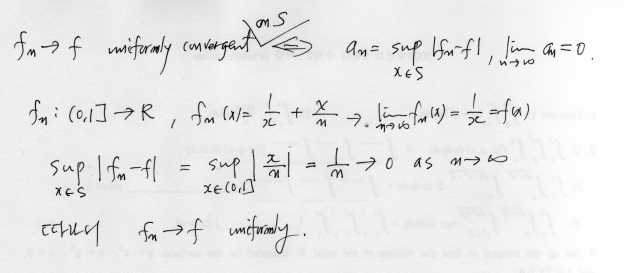 fn → f uniformly convergent on S ⟺ an = sup x∈S |fn-f| , lim n→∞ an = 0.
fn : (0,1] → R , fn(x) = 1/x + x/n → lim n→∞ fn(x) = 1/x = f(x)
sup x∈S |fn-f| = sup x∈(0,1] |x/n| = 1/n → 0 as n→∞
따라서 fn → f uniformly.